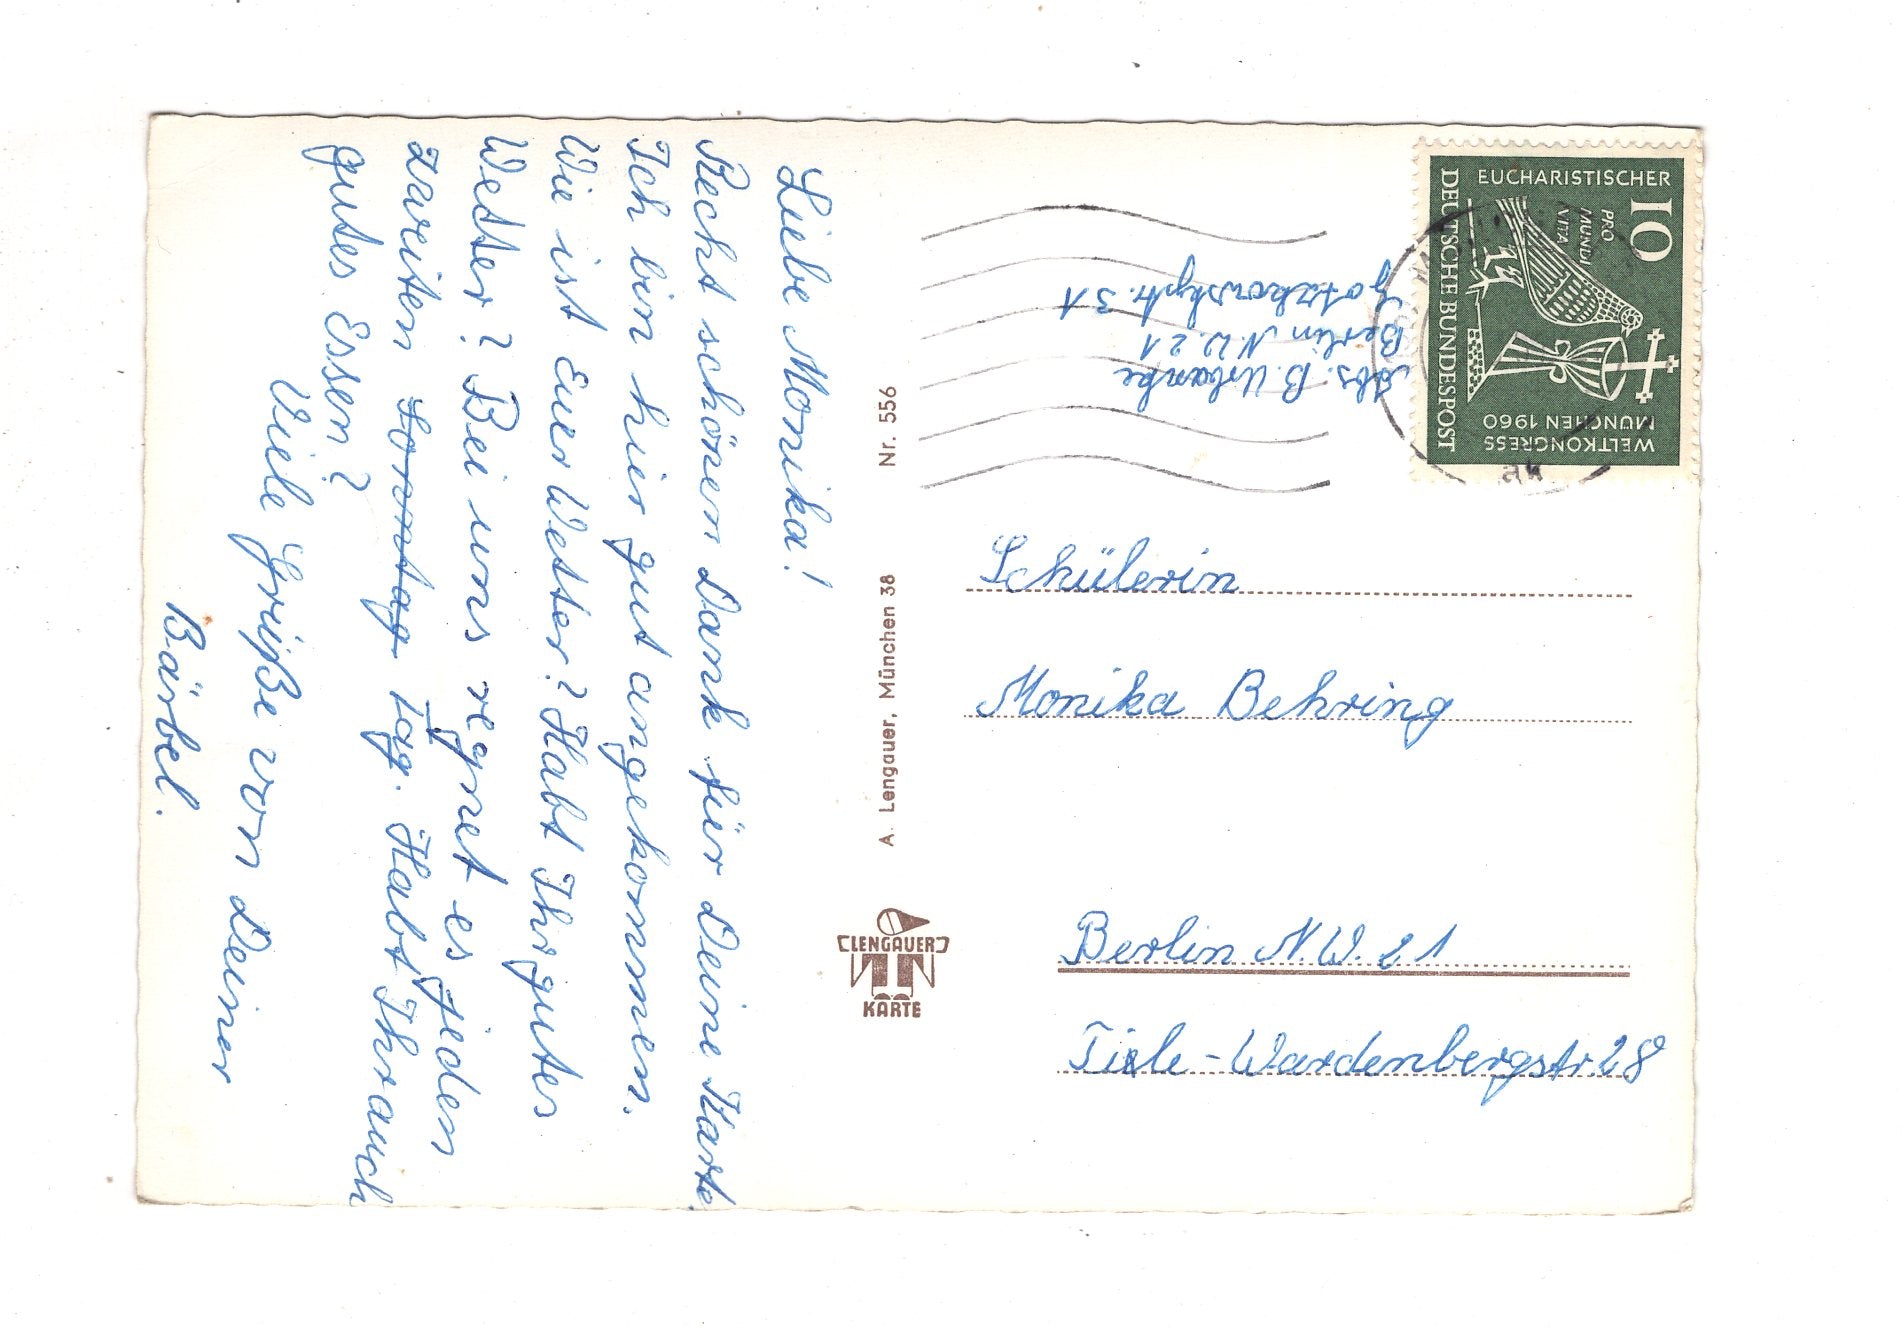 Liebe Monika!
Recht schönen Dank für Deine Karte
Ich bin hier gut angekommen.
Wie ist Euer Wetter? Habt Ihr gutes
Wetter? Bei uns regnet es jeden
zweiten Sonntag Tag. Habt Ihr auch
gutes Essen?
Viele Grüße von Deiner
Bärbel.
Nr. 556
A. Lengauer, München 38
LENGAUER
KARTE
Abs. B. Urbanke
Berlin N.W. 21
Gotzkowskystr. 31
EUCHARISTISCHER
WELTKONGRESS
MÜNCHEN 1960
PRO
MUNDI
VITA
10
DEUTSCHE BUNDESPOST
Schülerin
Monika Behring
Berlin N.W. 21
Tile-Wardenbergstr. 28